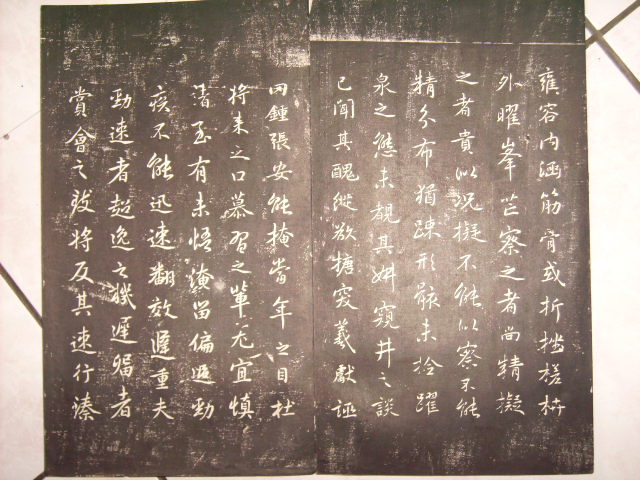 雍容内涵筋骨或折挫槎枿
外曜峯芒察之者尚精擬
之者貴似況擬不能似察不能
精分布猶疎形骸未撿躍
泉之態未覩其妍窺井之談
已聞其醜縱欲搪突羲獻誣
罔鍾張安能掩當年之目杜
將来之口慕習之輩尤宜慎
諸至有未悟淹留偏追勁
疾不能迅速翻效遲重夫
勁速者超逸之機遲留者
賞會之致將反其速行臻